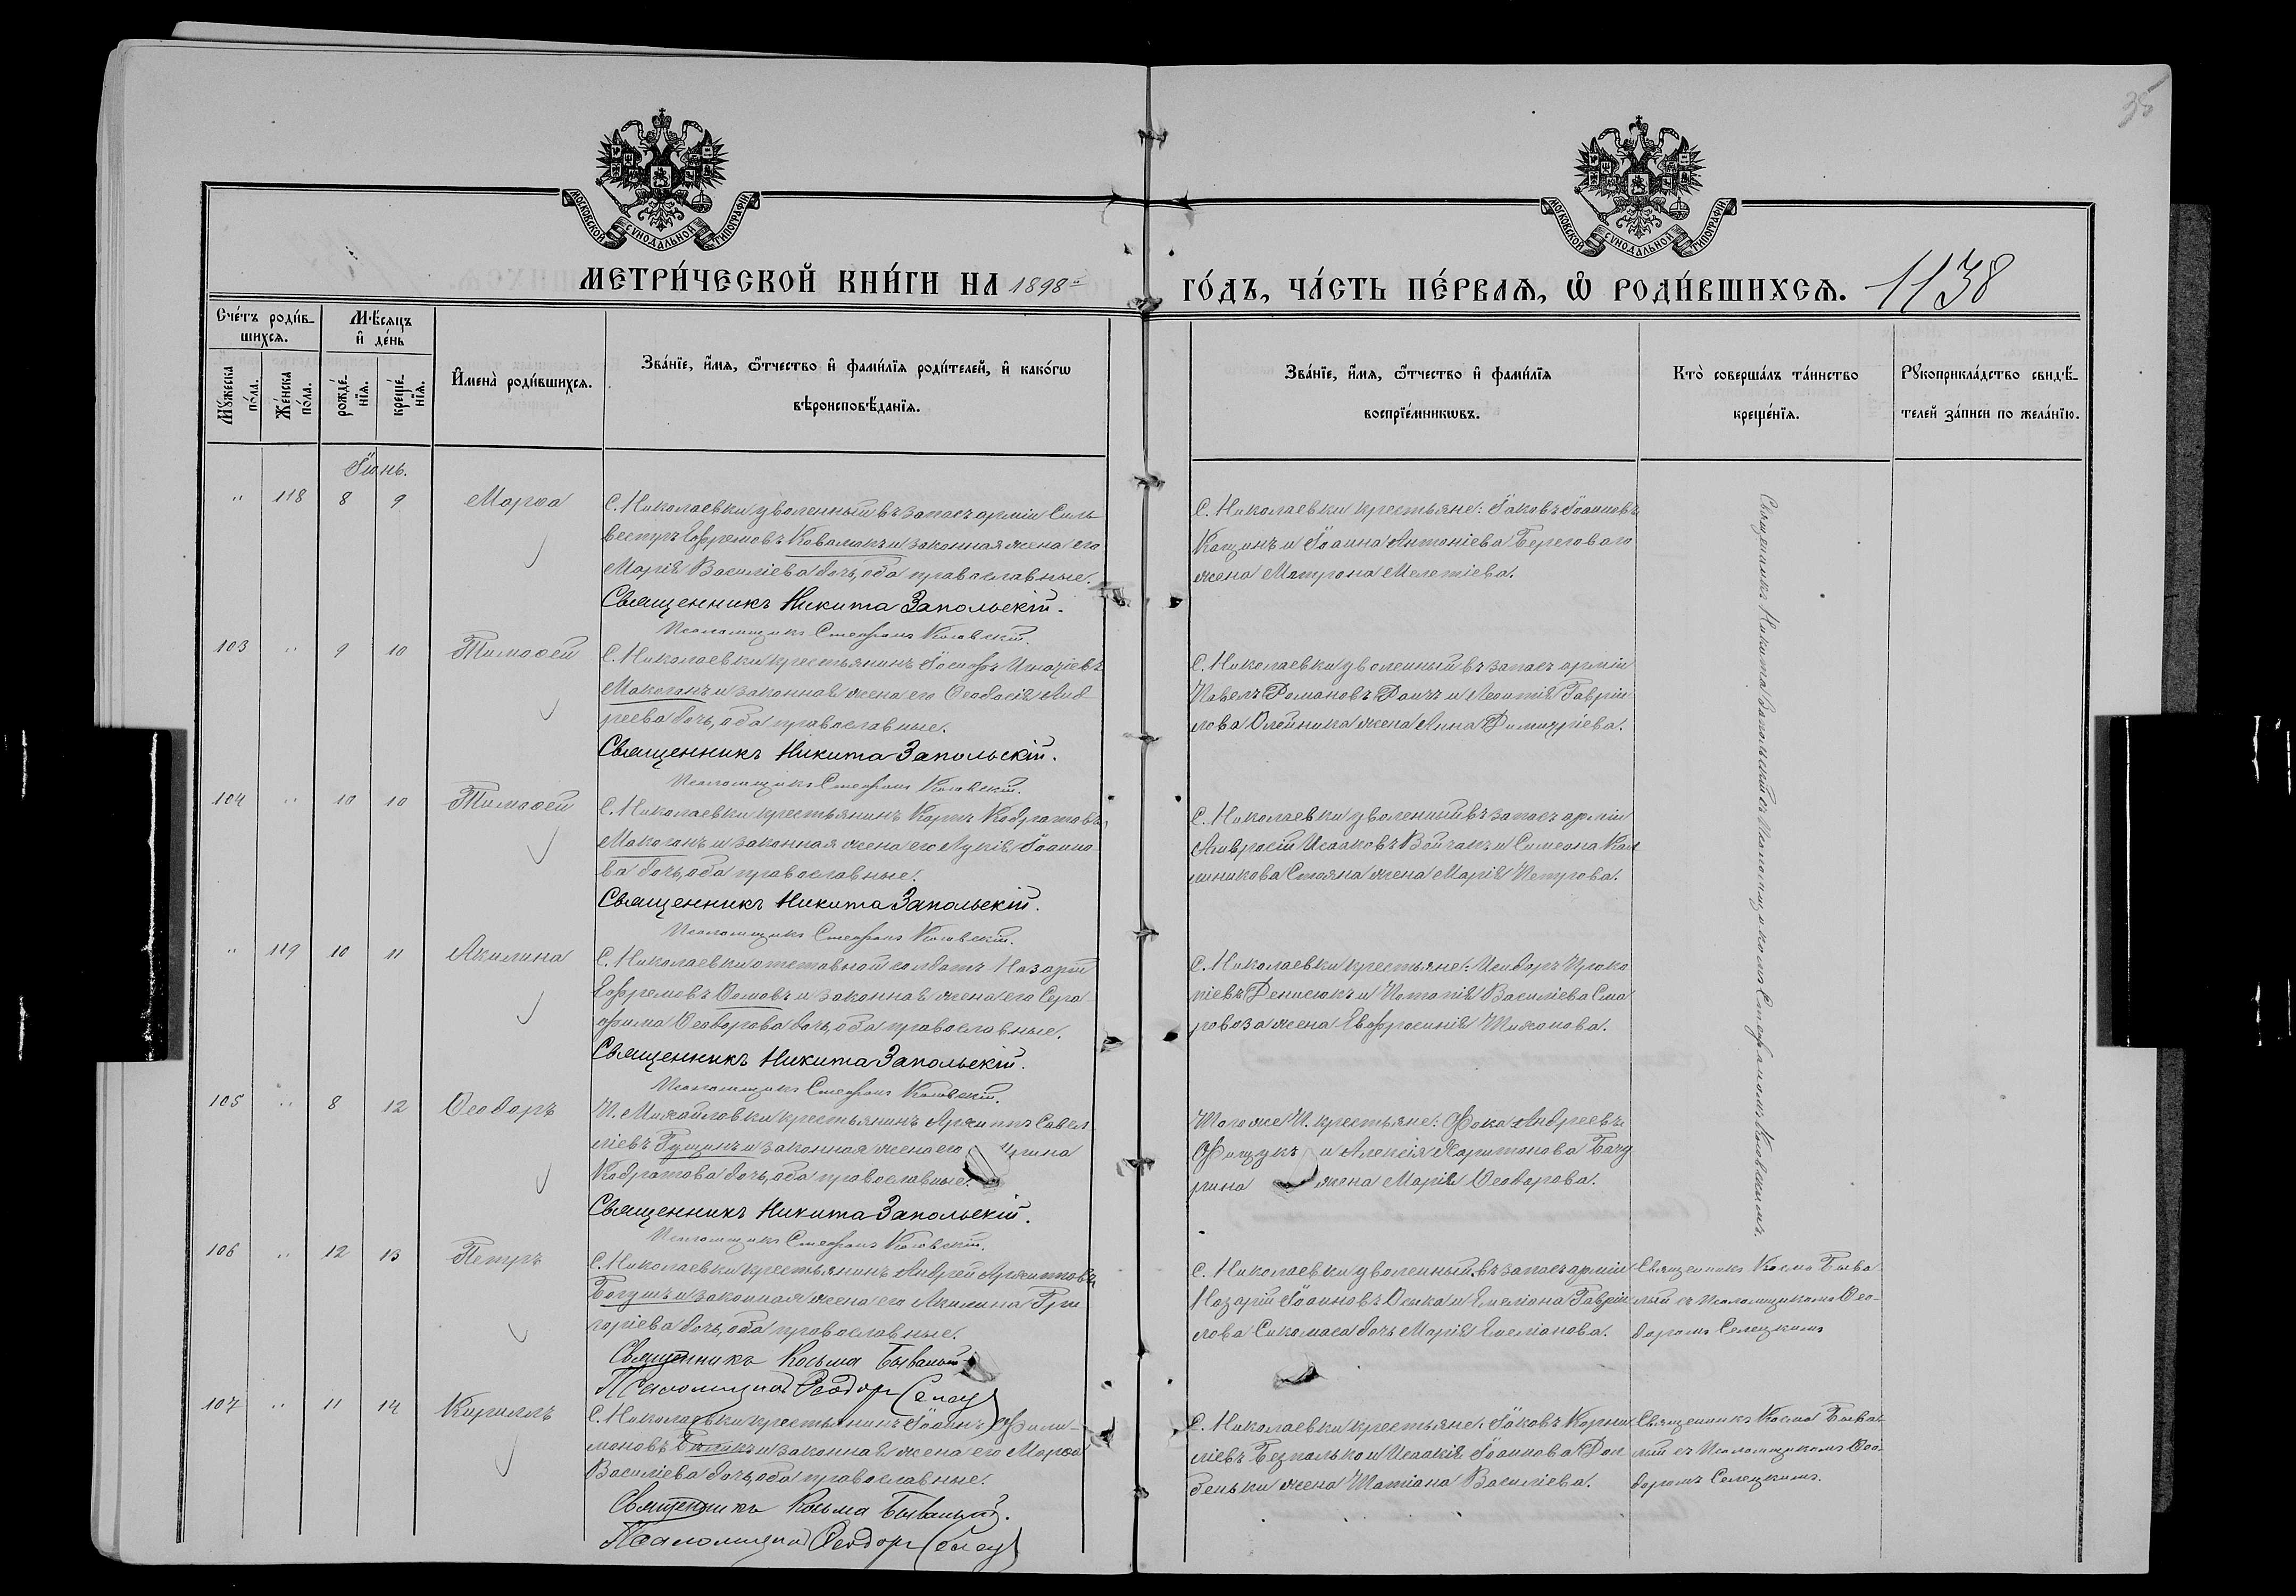 35
МОСКОВСКОЙ СѴНОДАЛЬНОЙ ТИПОГРАФІИ
МОСКОВСКОЙ СѴНОДАЛЬНОЙ ТИПОГРАФІИ
МЕТРИ́ЧЕСКОЙ КНИ́ГИ НА 1898й
ГО́ДЪ, ЧА́СТЬ ПЕ́РВАЯ, Ѿ РОДИ́ВШИХСЯ. 1138
Сче́тъ роди́в-
шихся.
Мѣ́сяцъ
и҆ де́нь
Мꙋ́жеска по́ла.
Же́нска по́ла.
рожде́-
нїя.
креще́-
нїя.
И҆мена̀ роди́вшихся.
Зва́нїе, и҆́мя, ѻ҆́тчество и҆ фами́лїя роди́телей, и҆ како́гѡ
вѣроисповѣ́данїя.
Зва́нїе, и҆́мя, ѻ҆́тчество и҆ фами́лїя
воспрїе́мникѡвъ.
Кто̀ соверша́лъ та́инство
креще́нїя.
Рꙋкоприкла́дство свидѣ́-
телей за́писи по жела́нїю.
Іюнь.
" 118 8 9 Марѳа
С. Николаевки уволенный въ запасъ арміи Силь
вестръ Ефремовъ Ковалюкъ и законная жена его
Марія Василіева дочь, оба православные.
Священникъ Никита Запольскій.
Псаломщикъ Стефанъ
С. Николаевки крестьяне: Іаковъ Іоанновъ
Кащинъ и Іоанна Антоніева Берегового
жена Матрона Мелетіева.
Священникъ Никита Запольскій съ Псаломщикомъ Стефаномъ
103 " 9 10 Тимоѳей
С. Николаевки крестьянинъ Іосифъ Игнатіевъ
Макоганъ и законная жена его Ѳеодосія Анд
реева дочь, оба православные.
Священникъ Никита Запольскій.
Псаломщикъ Стефанъ
С. Николаевки уволенный въ запасъ арміи
Павелъ Романовъ и Леонтія Гаврiи
лова Олейника жена Анна Димитріева.
104 " 10 10 Тимоѳей
С. Николаевки крестьянинъ Карпъ Кодратовъ
Макоганъ и законная жена его Лукія Іоанно
ва дочь, оба православные.
Священникъ Никита Запольскій.
Псаломщикъ Стефанъ
С. Николаевки уволенный въ запасъ арміи
Амвросій Исааковъ Войчакъ и Симеона
жена Марія Петрова.
" 119 10 11 Акилина
С. Николаевки отставной солдатъ Назарій
Ефремовъ и законная жена его Сера
фима Ѳеодорова дочь, оба православные.
Священникъ Никита Запольскій.
Псаломщикъ Стефанъ
С. Николаевки крестьяне: Исидоръ Проко
піевъ Денисюкъ и Потапія Василіева Сма
ровоза жена Евфросинія Тихонова.
105 " 8 12 Ѳеодоръ
П. Михайловки крестьянинъ Архиппъ Савел
ліевъ Гущинъ и законная жена его Ирина
Кодратова дочь, оба православные.
Священникъ Никита Запольскій.
Псаломщикъ Стефанъ
Того же П. крестьяне: Фока Андреевъ
Фищукъ и Алексія Харитонова Бачу
рина жена Марія Ѳеодорова.
106 " 12 13 Петръ
С. Николаевки крестьянинъ Андрей Архипповъ
Богушъ и законная жена его Акилина Гри
горіева дочь, оба православные.
Священникъ Косьма Бывалый.
Псаломщикъ Ѳеодоръ
С. Николаевки уволенный въ запасъ арміи
Назарій Іоанновъ и Емеліана Гаврiи
лова Сикомаса дочь Марія Емеліанова.
Священникъ Косма Быва
лый съ Псаломщикомъ Ѳео-
доромъ Селецкимъ
107 " 11 14 Кириллъ
С. Николаевки крестьянинъ Іоаннъ Фили-
моновъ и законная жена его Марѳа
Василіева дочь, оба православные.
Священникъ Косьма Бывалый.
Псаломщикъ Ѳеодоръ
С. Николаевки крестьяне: Іаковъ Корни
ліевъ Безпалько и Исаакія Іоаннова Дол
беньки жена Татіана Василіева.
Священникъ Косма Быва
лый съ Псаломщикомъ Ѳео-
доромъ Селецкимъ.